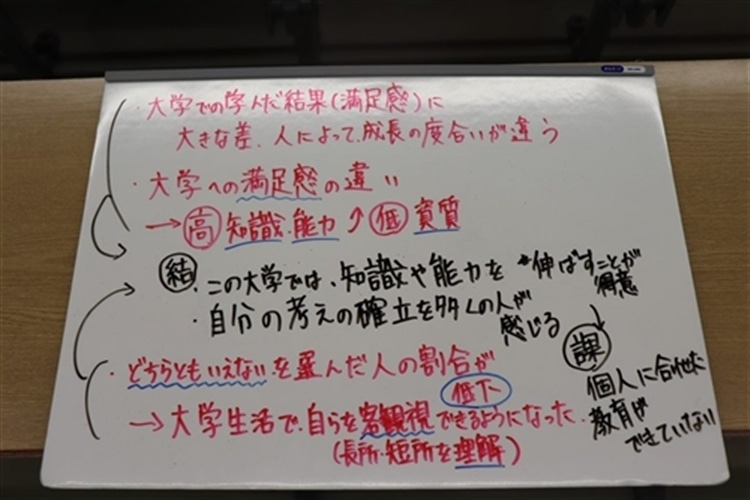 ・大学での学んだ結果(満足感)に
大きな差.人によって.成長の度合いが違う
・大学への満足感の違い
→高 知識.能力↑低 資質
結・この大学では、知識や能力を *伸ばすことが
得意
・自分の考えの確立を多くの人が
感じる
課
個人に合わせた
教育が
できていない
・どちらともいえないを選んだ人の割合が
低下
→大学生活で、自らを客観視できるようになった.
(長所・短所を理解)